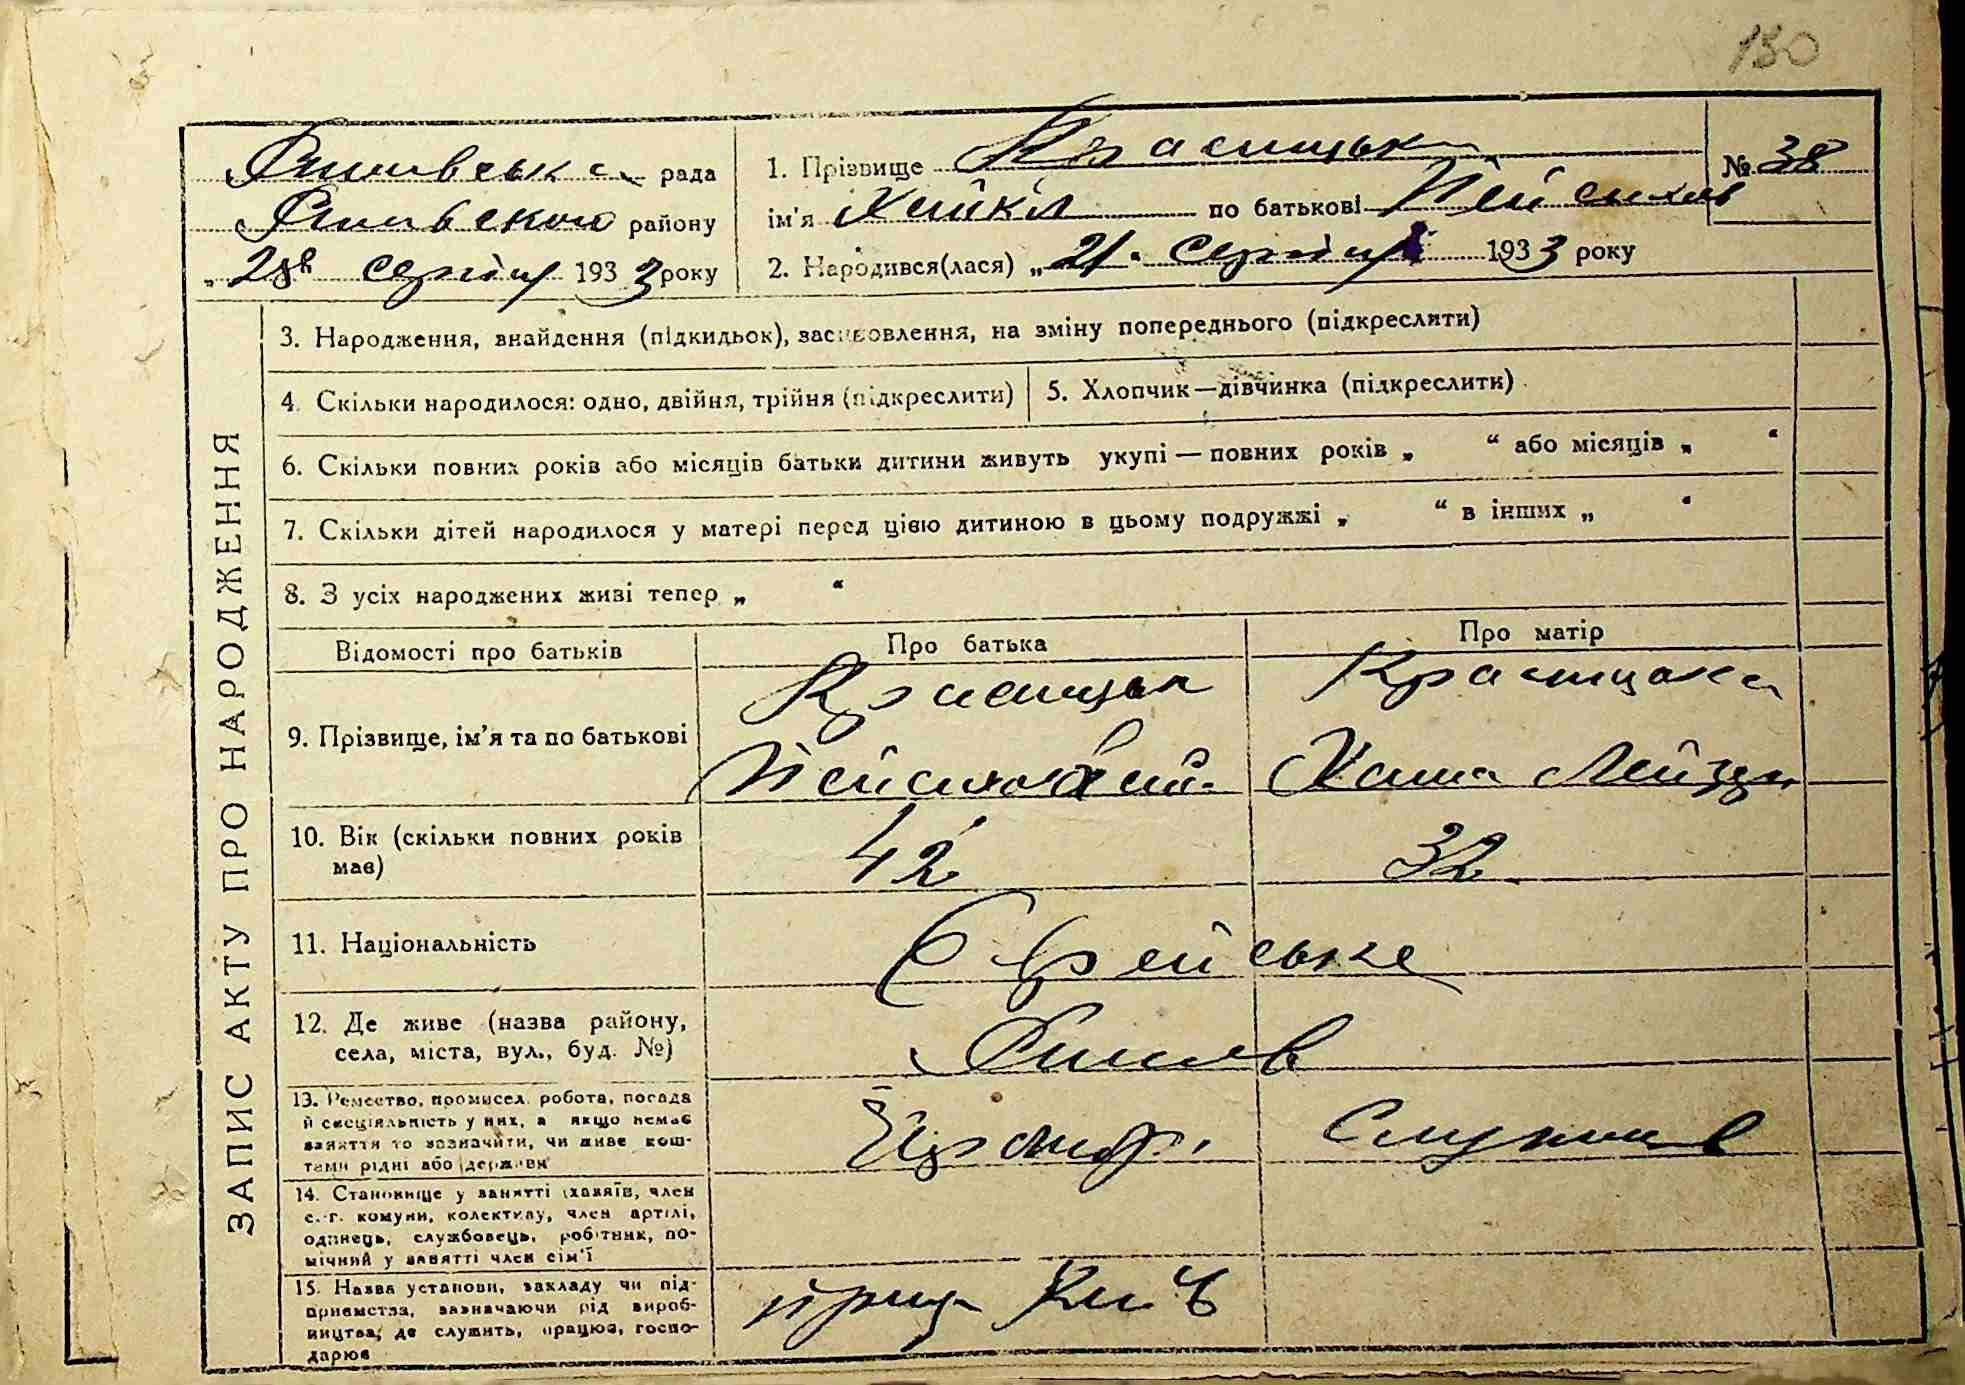 130
рада
району
„28 серпня 1933 року
1. Прізвище Красницька
№ 38
ім'я Хайкл по батькові Пейсихов
2. Народився(лася) „21. серпня 1933 року
ЗАПИС АКТУ ПРО НАРОДЖЕННЯ
3. Народження, знайдення (підкидьок), засиновлення, на зміну попереднього (підкреслити)
4. Скільки народилося: одно, двійня, трійня (підкреслити)
5. Хлопчик—дівчинка (підкреслити)
6. Скільки повних років або місяців батьки дитини живуть укупі — повних років „ “ або місяців „ “
7. Скільки дітей народилося у матері перед цією дитиною в цьому подружжі „ “ в інших „ “
8. З усіх народжених живі тепер „ “
Відомості про батьків
Про батька
Про матір
9. Прізвище, ім'я та по батькові
Красницьк
Красницька
Хана Лейзер
10. Вік (скільки повних років
має)
42
32
11. Національність
Єврейське
12. Де живе (назва району,
села, міста, вул., буд. №)
13. Ремество, промисел, робота, посада
й спеціяльність у них, а якщо немає
заняття то зазначити, чи живе кош-
тами рідні або держави
14. Становище у занятті (хазяїн, член
с.-г. комуни, колективу, член артілі,
одинець, службовець, робітник, по-
мічний у занятті член сім'ї
15. Назва установи, закладу чи під-
приємства, зазначаючи рід вироб-
ництва, де служить, працює, госпо-
дарює